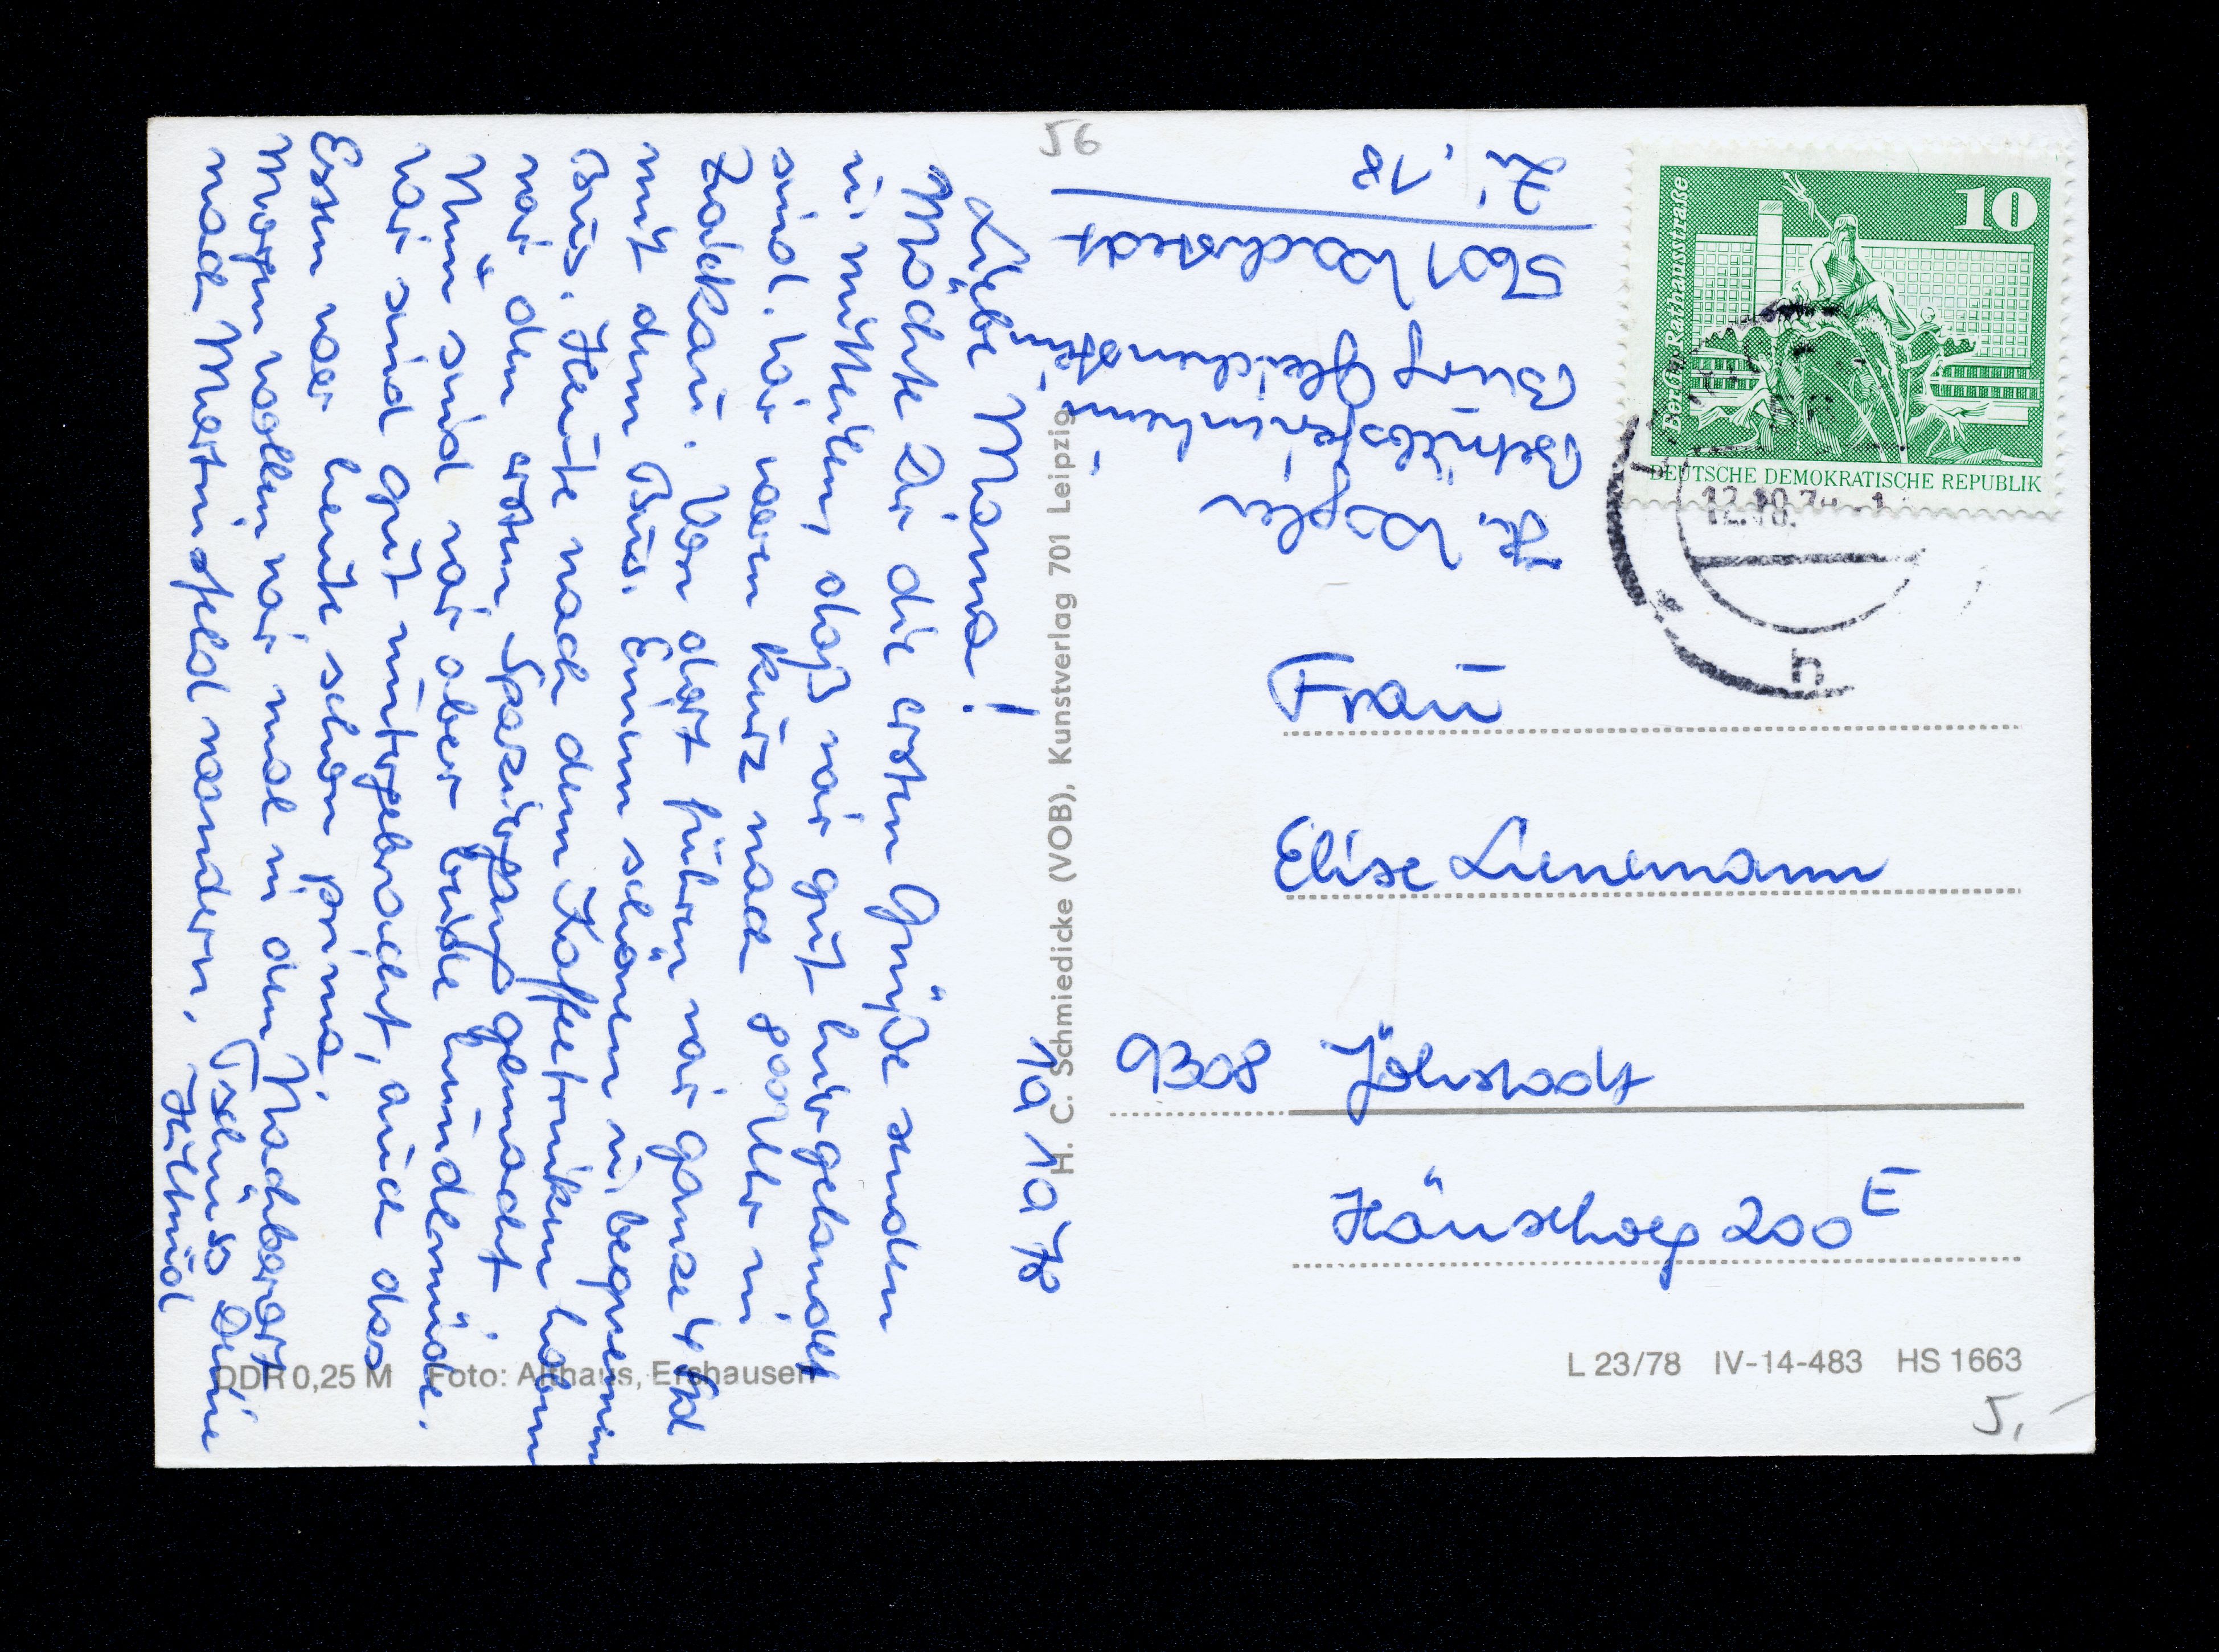 10 10 78
Liebe Mama!
Möchte Dir die ersten Grüße senden
u. mitteilen, daß wir gut hier gelandet
sind. Wir waren kurz nach 8⁰⁰ Uhr in
Zwickau. Von dort fuhren wir ganze 4 Std
mit dem Bus. Einem schönen u. bequemen
Bus. Heute nach dem Kaffeetrinken haben
wir den ersten Spaziergang gemacht.
Nun sind wir aber beide hundemüde.
Wir sind gut untergebracht, auch das
Essen war heute schon prima.
Morgen wollen wir mal in den Nachbarort
nach Martinsfeld wandern. Tschüß Deine
Hiltrud
H. C. Schmiedicke (VOB), Kunstverlag 701 Leipzig
DDR 0,25 M Foto: Althaus, Ershausen
56
H.
Betriebsferienheim
Burg Gleichenstein
5601 Wachstedt
Zi. 18
10
Berlin, Rathausstraße
DEUTSCHE DEMOKRATISCHE REPUBLIK
12.10.
h
Frau
Elise Lienemann
9308 Jöhstadt
Häuselweg 200E
L 23/78 IV-14-483 HS 1663
5,-